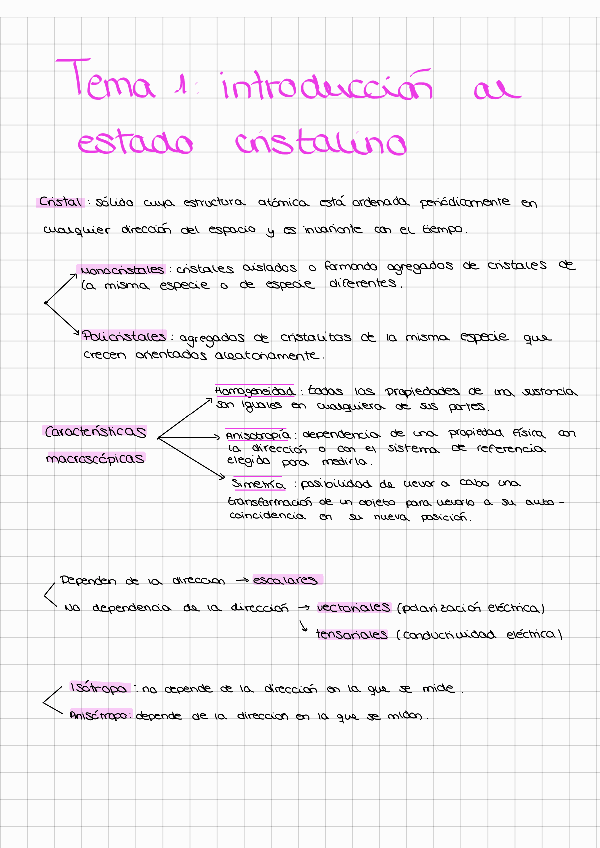 Tema 1: introducción al
estado cristalino
Cristal: sólido cuya estructura atómica está ordenada periódicamente en
cualquier dirección del espacio y es invariante con el tiempo.
Monocristales: cristales aislados o formando agregados de cristales de
la misma especie o de especie diferentes.
Policristales: agregados de cristalitos de la misma especie que
crecen orientados aleatoriamente.
Características
macroscópicas
Homogeneidad: todas las propiedades de una sustancia
son iguales en cualquiera de sus partes.
Anisotropía: dependencia de una propiedad física con
la dirección o con el sistema de referencia
elegido para medirlo.
Simetría: posibilidad de llevar a cabo una
transformación de un objeto para llevarlo a su auto-
coincidencia en su nueva posición.
Dependen de la dirección → escalares
No dependencia de la dirección → vectoriales (polarización eléctrica)
↘ tensoriales (conductividad eléctrica)
Isótropo: no depende de la dirección en la que se mide.
Anisótropo: depende de la direccion en la que se midan.